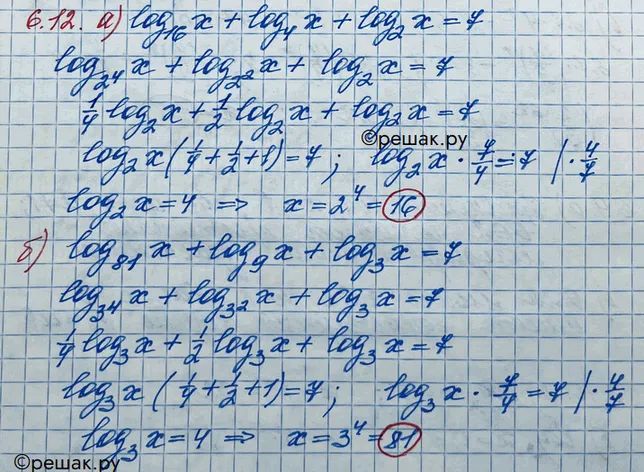 6.12. а) log₁₆x + log₄x + log₂x = 7
log₂⁴ x + log₂² x + log₂ x = 7
1/4 log₂x + 1/2 log₂x + log₂x = 7
©решак.ру
log₂x (1/4 + 1/2 + 1) = 7 ; log₂x · 7/4 = 7 | · 4/7
log₂x = 4 ⇒ x = 2⁴ = 16
б) log₈₁x + log₉x + log₃x = 7
log₃⁴ x + log₃² x + log₃x = 7
1/4 log₃x + 1/2 log₃x + log₃x = 7
log₃x (1/4 + 1/2 + 1) = 7 ; log₃x · 7/4 = 7 | · 4/7
log₃x = 4 ⇒ x = 3⁴ = 81
©решак.ру